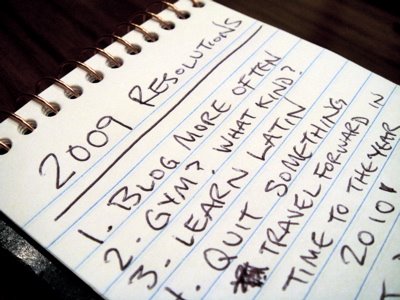 2009 RESOLUTIONS
1. BLOG MORE OFTEN
2. GYM? WHAT KIND?
3. LEARN LATIN
4. QUIT SOMETHING
TRAVEL FORWARD IN
TIME TO THE YEAR
2010